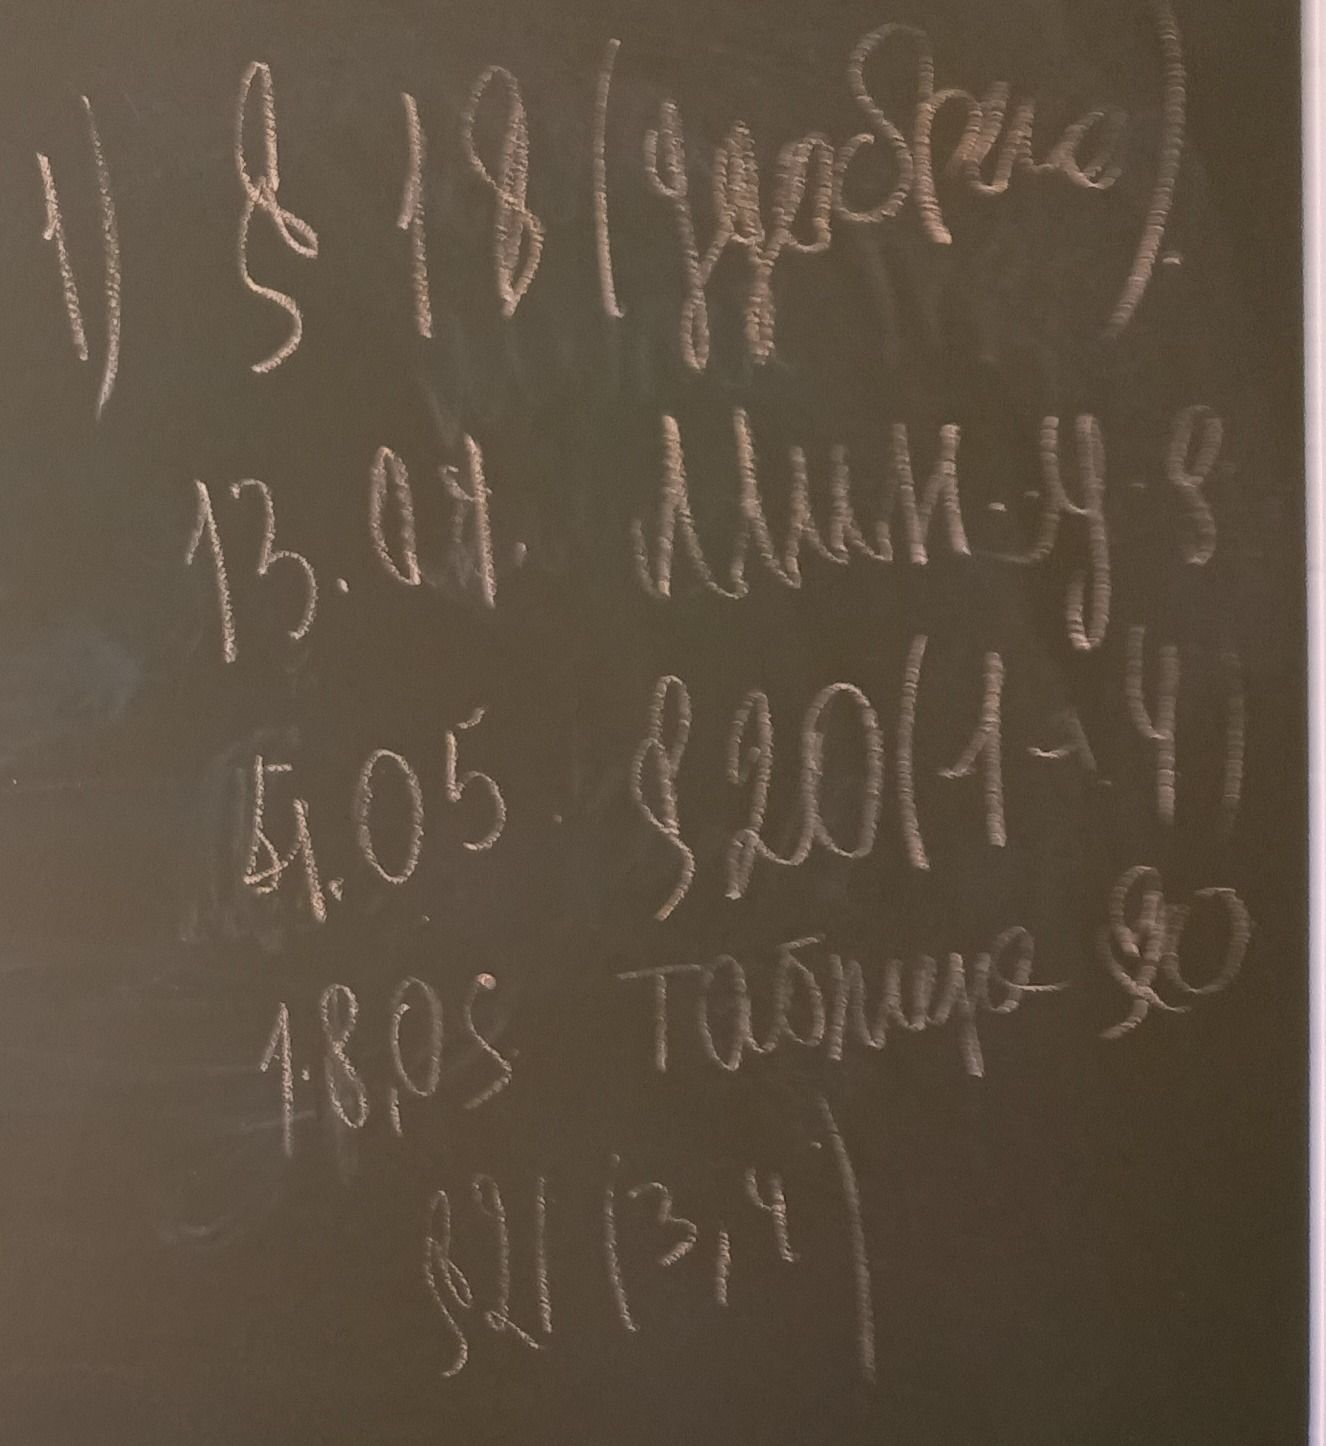 1) § 18 (устно)
13.04. Мин-у 8
4.05. § 20 (1-4)
18.05 таблица 20
§ 21 (3,4)